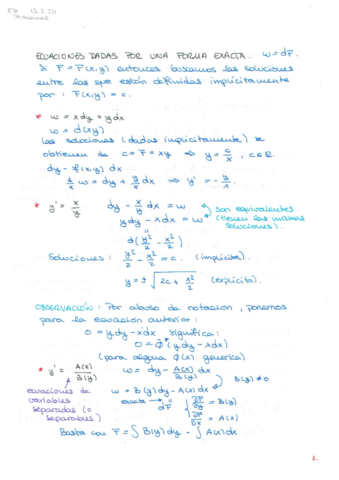 ED 13.2.20
ECUACIONES DADAS POR UNA FORMA EXACTA. ω = dF.
Si F = F(x,y) entonces buscamos las soluciones
entre las que están definidas implícitamente
por : F(x,y) = c.
* ω = x dy + y dx
ω = d(xy)
Las soluciones (dadas implícitamente) se
obtienen de c = F = xy ⇒ y = c/x , c ∈ ℝ.
dy - f(x,y) dx
1/x ω = dy + y/x dx ⇒ y' = - y/x.
* y' = x/y dy - x/y dx = ω son equivalentes
y dy - x dx = ω (tienen las mismas
soluciones).
d(y²/2 - x²/2)
Soluciones : y²/2 - x²/2 = c. (implícita).
y = ± √(2c + x²/2) (explícita).
OBSERVACIÓN : Por abuso de notación, ponemos
para la ecuación anterior :
0 = y dy - x dx significa :
0 = ϕ*(y dy - x dx)
(para alguna ϕ(x) generica)
* y' = A(x)/B(y) ω = dy - A(x)/B(y) dx
B(y) ≠ 0
ecuaciones de ω = B(y) dy - A(x) dx
variables exacta → dF { ∂F/∂y = B(y)
separadas (o
separables) ∂F/∂x = A(x)
Basta con F = ∫ B(y) dy - ∫ A(x) dx
1.